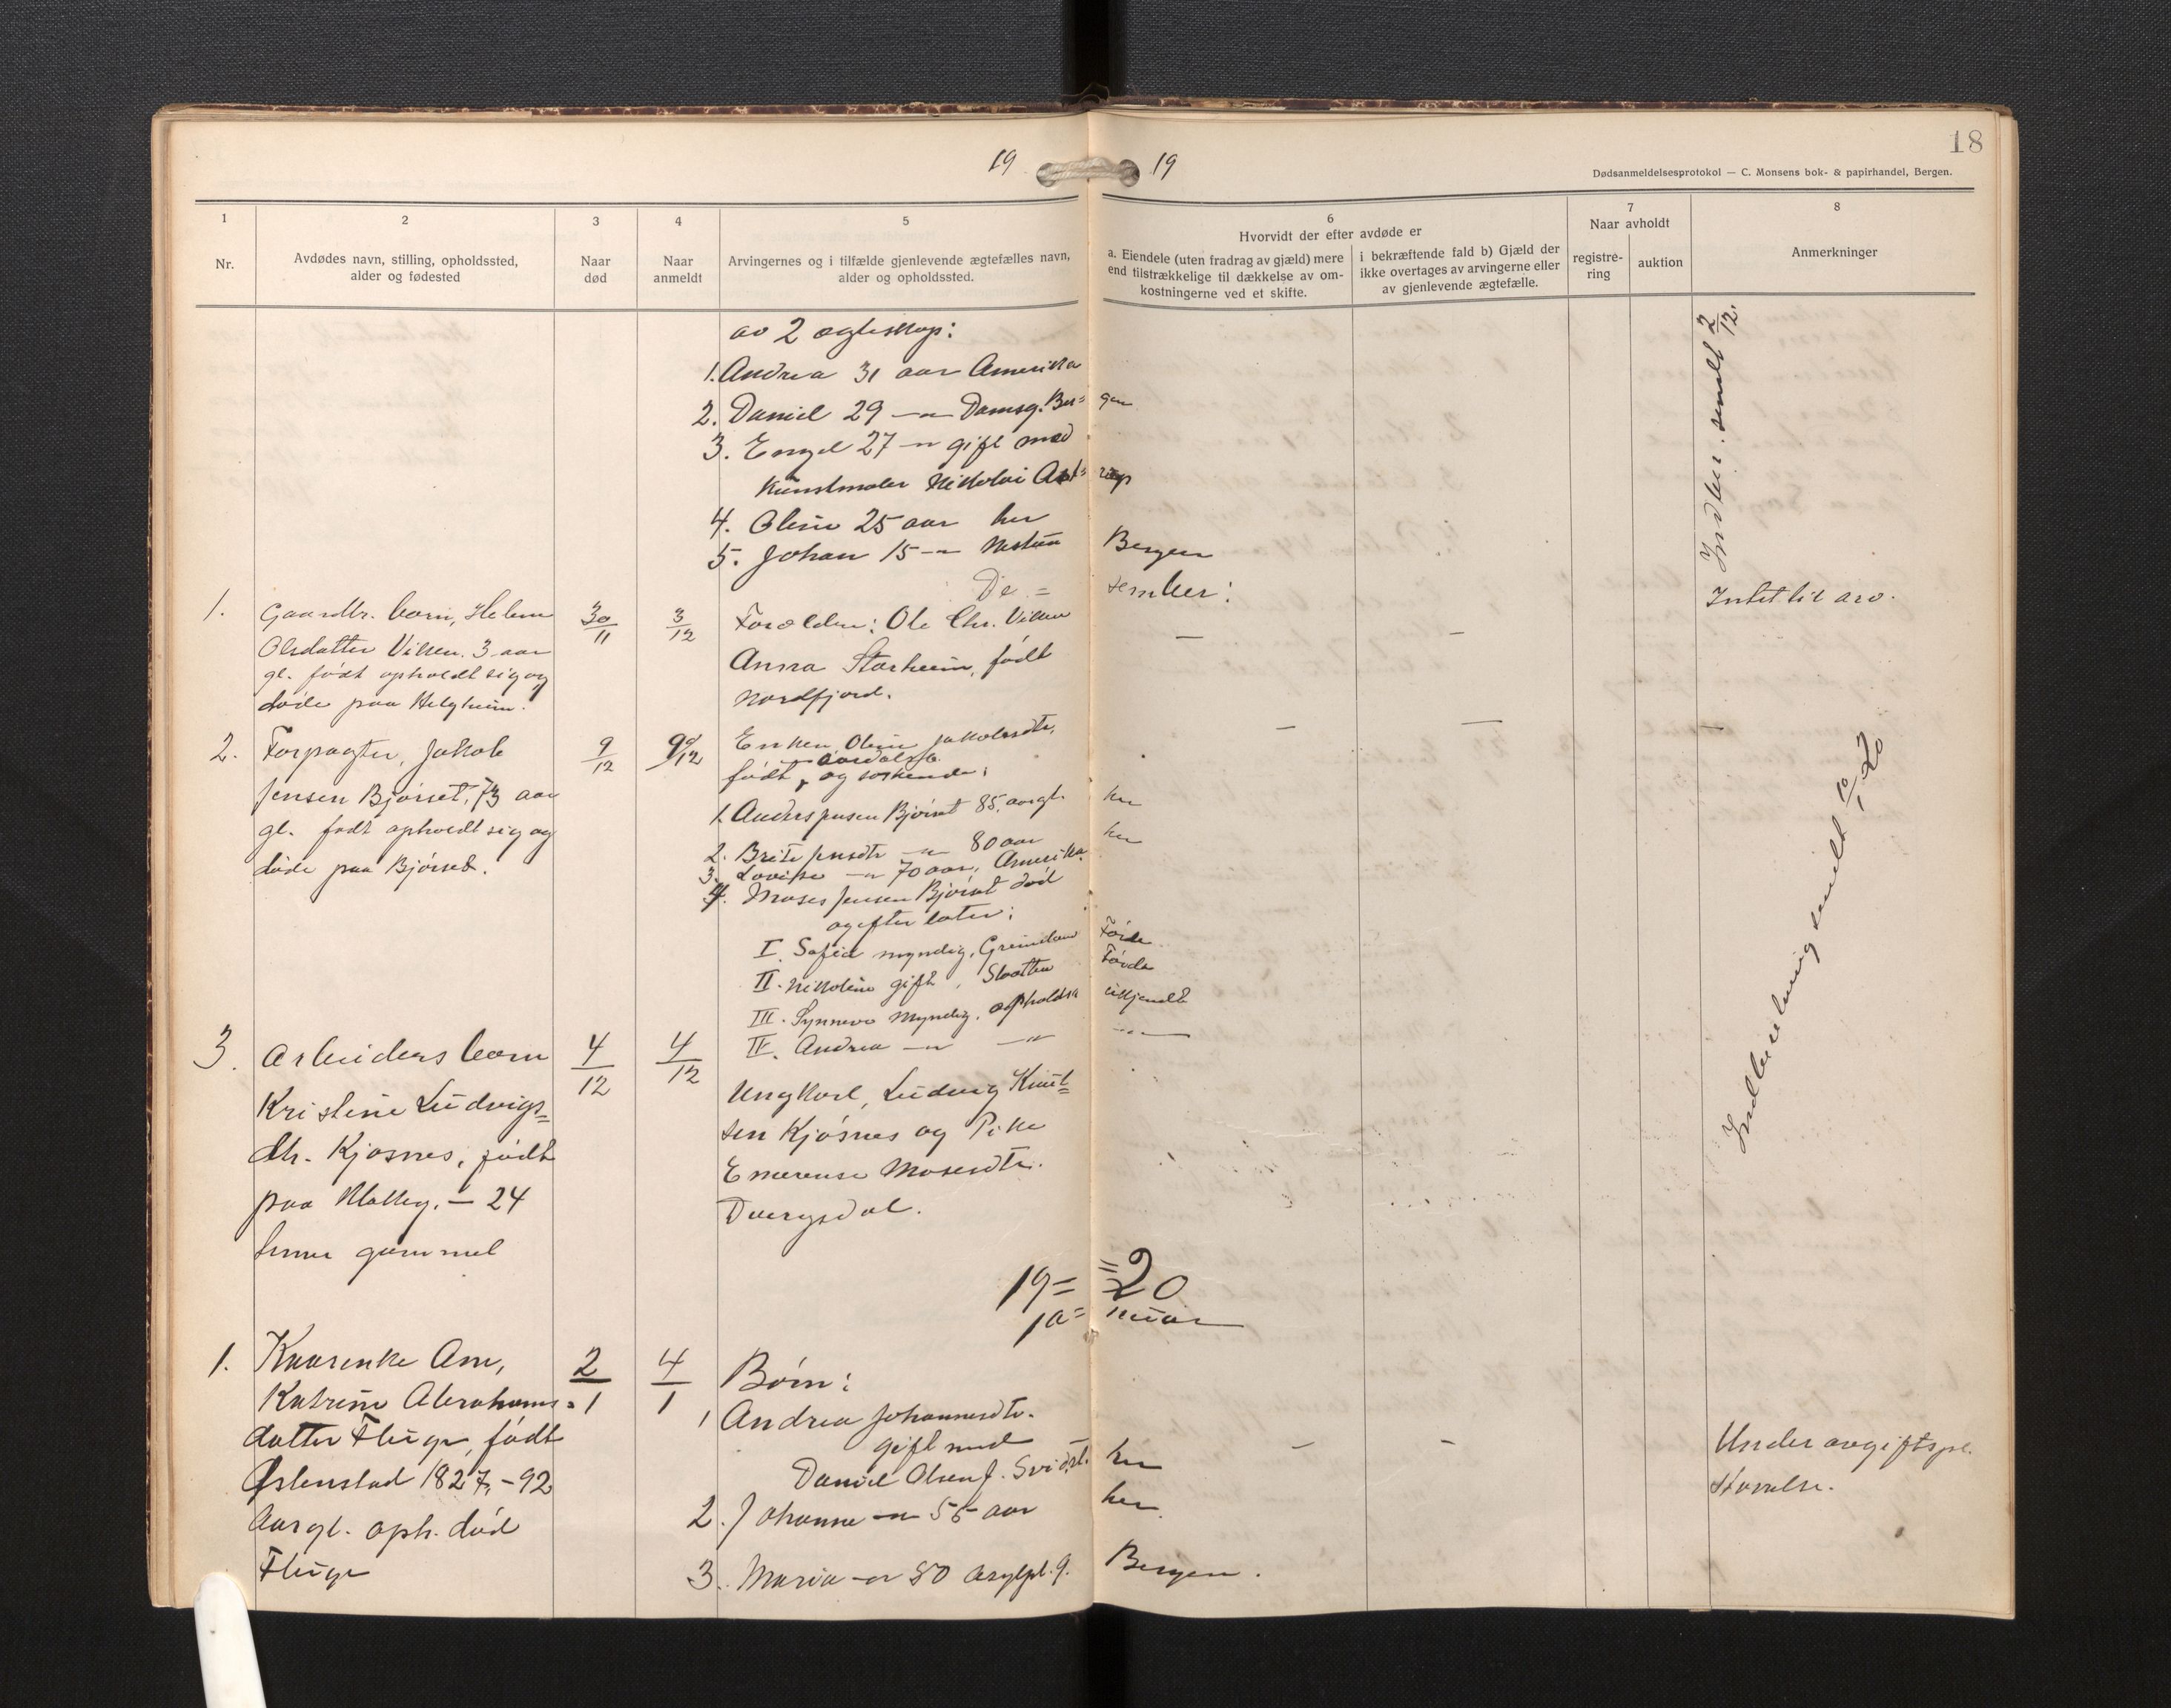 18
19 19
Dødsanmeldelsesprotokol — C. Monsens bok- & papirhandel, Bergen.
1 2 3 4 5 6 7 8
Nr.
Avdødes navn, stilling, opholdssted,
alder og fødested
Naar
død
Naar
anmeldt
Arvingernes og i tilfælde gjenlevende ægtefælles navn,
alder og opholdssted.
Hvorvidt der efter avdøde er
a. Eiendele (uten fradrag av gjæld) mere
end tilstrækkelige til dækkelse av om-
kostningerne ved et skifte.
i bekræftende fald b) Gjæld der
ikke overtages av arvingerne eller
av gjenlevende ægtefælle.
Naar avholdt
registre-
ring
auktion
Anmerkninger
av 2 ægteskap:
1. Andrea 31 aar Amerika
2. Daniel 29 —"— Damsg. Ber= gen
3. Engel 27 —"— gift med
Kunstmaler Nikolai Ast= rup
4. Oline 25 aar her
5. Johan 15 —"— Bergen
Indber. sendt 2/12
De = sember:
1. Gaardbr. barn, Helene
Olsdatter Viken. 3 aar
gl. født opholdt sig og
døde paa Helgheim.
30/11 3/12
Forældre: Ole Chr. Viken
Anna Starheim, født
Nordfjord.
— —
Intet til arv.
2. Forpagter, Jakob
Jensen Bjørset, 73 aar
gl. født opholdt sig og
døde paa Bjørset.
9/12 9/12
Enken Oline Jakobsdtr.
født, og søskende:
1. Anders Jensen Bjørset 85 aar gl. her
2. Brite Jensdtr —"— 80 aar her
3. Lovise —"— 70 aar, Amerika
4. Moses Jensen Bjørset død
og efterlater:
I. Sofie myndig, Førde
II. Nikoline gift, Slaatten Førde
III. Synneve myndig, opholdss ukjendt
IV. Andrea —"— —"— —"—
— —
Indberetning sendt 10/1 20
3. Arbeiders barn
Kristine Ludvigs=
dtr. Kjøsnes, født
paa — 24
timer gammel
4/12 4/12
Ungkarl, Ludvig Knut=
sen Kjøsnes og Pike
Emerense Mosesdtr.
Dvergsdal.
19= =20
Ja= nuar
1. Kaarenke Ane,
Katrine Abrahams=
datter Fluge, født
Østenstad 1827, - 92
Aar gl. oph. død
Fluge
2/1 4/1
Børn:
1 Andrea Johannesdtr.
gift med
Daniel Olsen her
2. Johanne —"— 55 aar her.
3. Maria —"— 50 Bergen.
— —
Under avgiftspl.
størrelse.